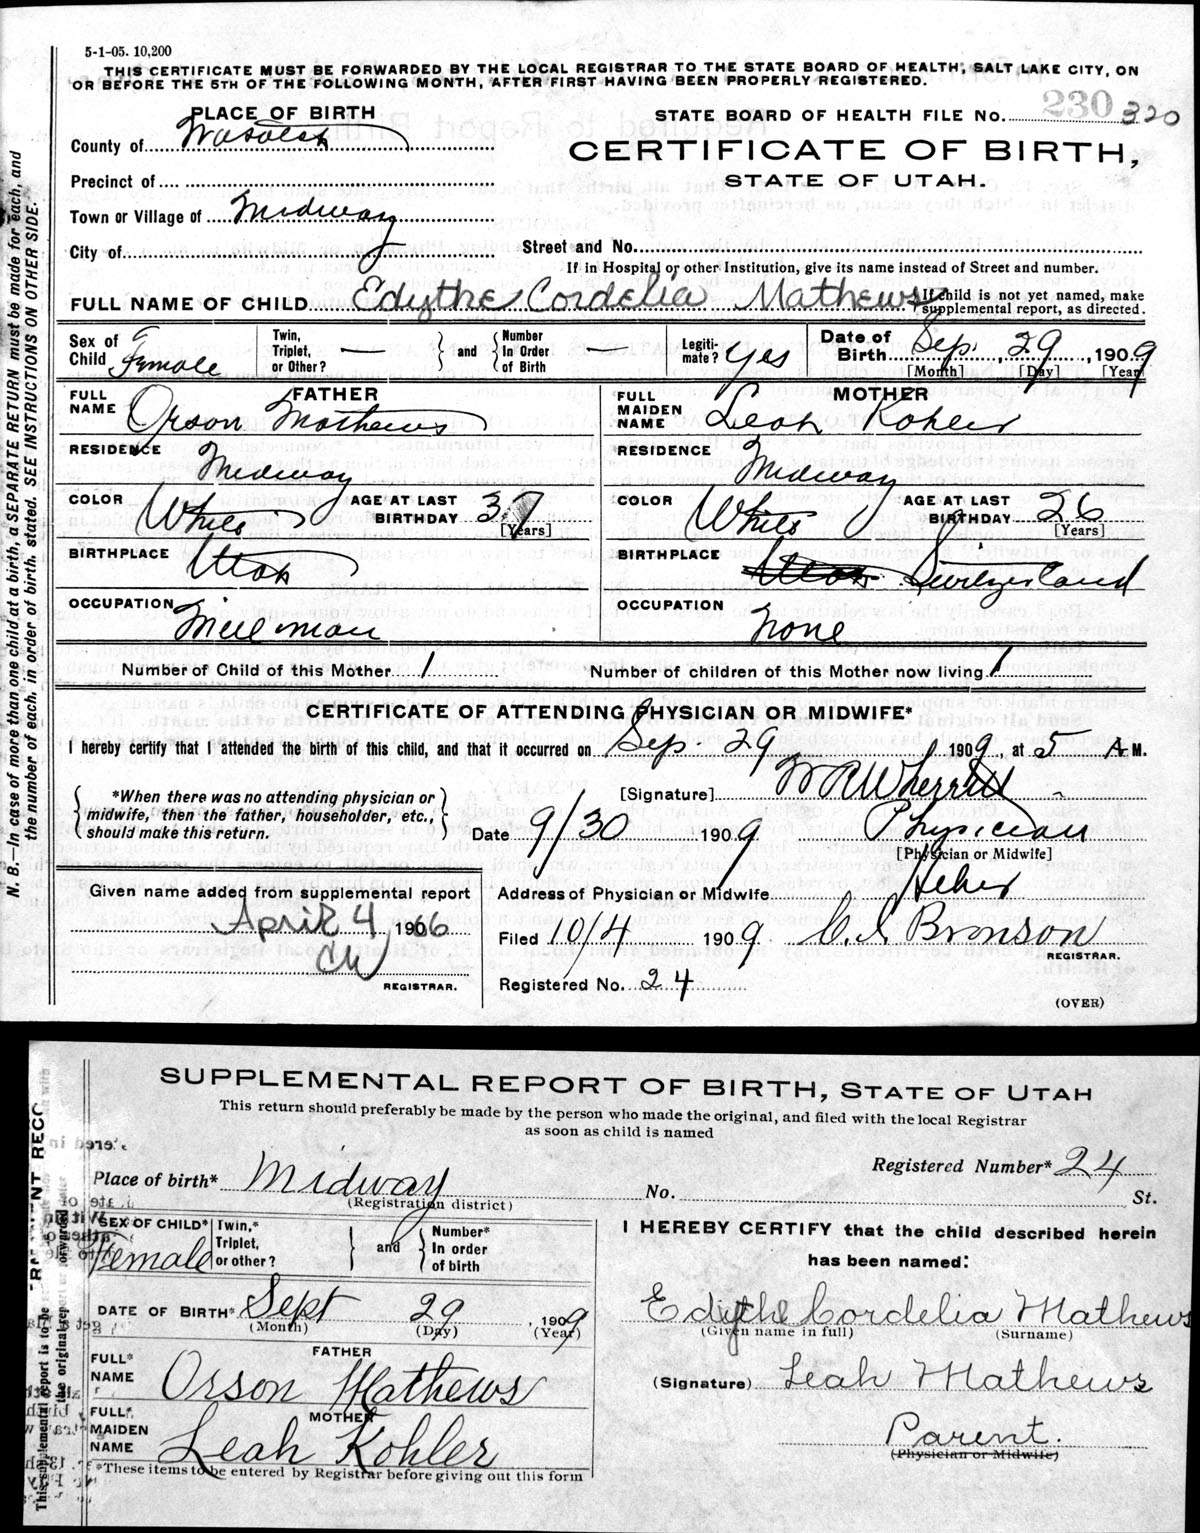 5-1-05. 10,200
THIS CERTIFICATE MUST BE FORWARDED BY THE LOCAL REGISTRAR TO THE STATE BOARD OF HEALTH, SALT LAKE CITY, ON
OR BEFORE THE 5TH OF THE FOLLOWING MONTH, AFTER FIRST HAVING BEEN PROPERLY REGISTERED.
N. B.—In case of more than one child at a birth, a SEPARATE RETURN must be made for each, and
the number of each, in order of birth, stated. SEE INSTRUCTIONS ON OTHER SIDE.
PLACE OF BIRTH
STATE BOARD OF HEALTH FILE No. 230 320
County of Wasatch
CERTIFICATE OF BIRTH,
STATE OF UTAH.
Precinct of
Town or Village of Midway
City of
Street and No.
If in Hospital or other Institution, give its name instead of Street and number.
FULL NAME OF CHILD Edythe Cordelia Mathews
If child is not yet named, make
supplemental report, as directed.
Sex of Child Female
Twin, Triplet, or Other? —
and
Number In Order of Birth —
Legiti-mate? Yes
Date of Birth Sep. , 29 , 1909
[Month] [Day] [Year]
FATHER
FULL NAME Orson Mathews
MOTHER
FULL MAIDEN NAME Leah Kohler
RESIDENCE Midway
RESIDENCE Midway
COLOR White AGE AT LAST BIRTHDAY 37 [Years]
COLOR White AGE AT LAST BIRTHDAY 26 [Years]
BIRTHPLACE Utah
BIRTHPLACE Utah Switzerland
OCCUPATION Mill man
OCCUPATION None
Number of Child of this Mother 1
Number of children of this Mother now living 1
CERTIFICATE OF ATTENDING PHYSICIAN OR MIDWIFE*
I hereby certify that I attended the birth of this child, and that it occurred on Sep. 29 1909, at 5 A M.
*When there was no attending physician or
midwife, then the father, householder, etc.,
should make this return.
[Signature] W R Wherritt
Date 9/30 1909 Physician
[Physician or Midwife]
Given name added from supplemental report
April 4, 1966
CW
REGISTRAR.
Address of Physician or Midwife Heber
Filed 10/4 1909 C. I. Bronson
REGISTRAR.
Registered No. 24
(OVER)
SUPPLEMENTAL REPORT OF BIRTH, STATE OF UTAH
This return should preferably be made by the person who made the original, and filed with the local Registrar
as soon as child is named
This supplemental report is to be
the original report
Registered Number* 24
Place of birth* Midway No. St.
(Registration district)
SEX OF CHILD* Female
Twin,* Triplet, or other?
and
Number* In order of birth
DATE OF BIRTH* Sept 29 , 1909
(Month) (Day) (Year)
FATHER
FULL* NAME Orson Mathews
MOTHER
FULL* MAIDEN NAME Leah Kohler
*These items to be entered by Registrar before giving out this form
I HEREBY CERTIFY that the child described herein
has been named:
Edythe Cordelia Mathews
(Given name in full) (Surname)
(Signature) Leah Mathews
Parent.
(Physician or Midwife)